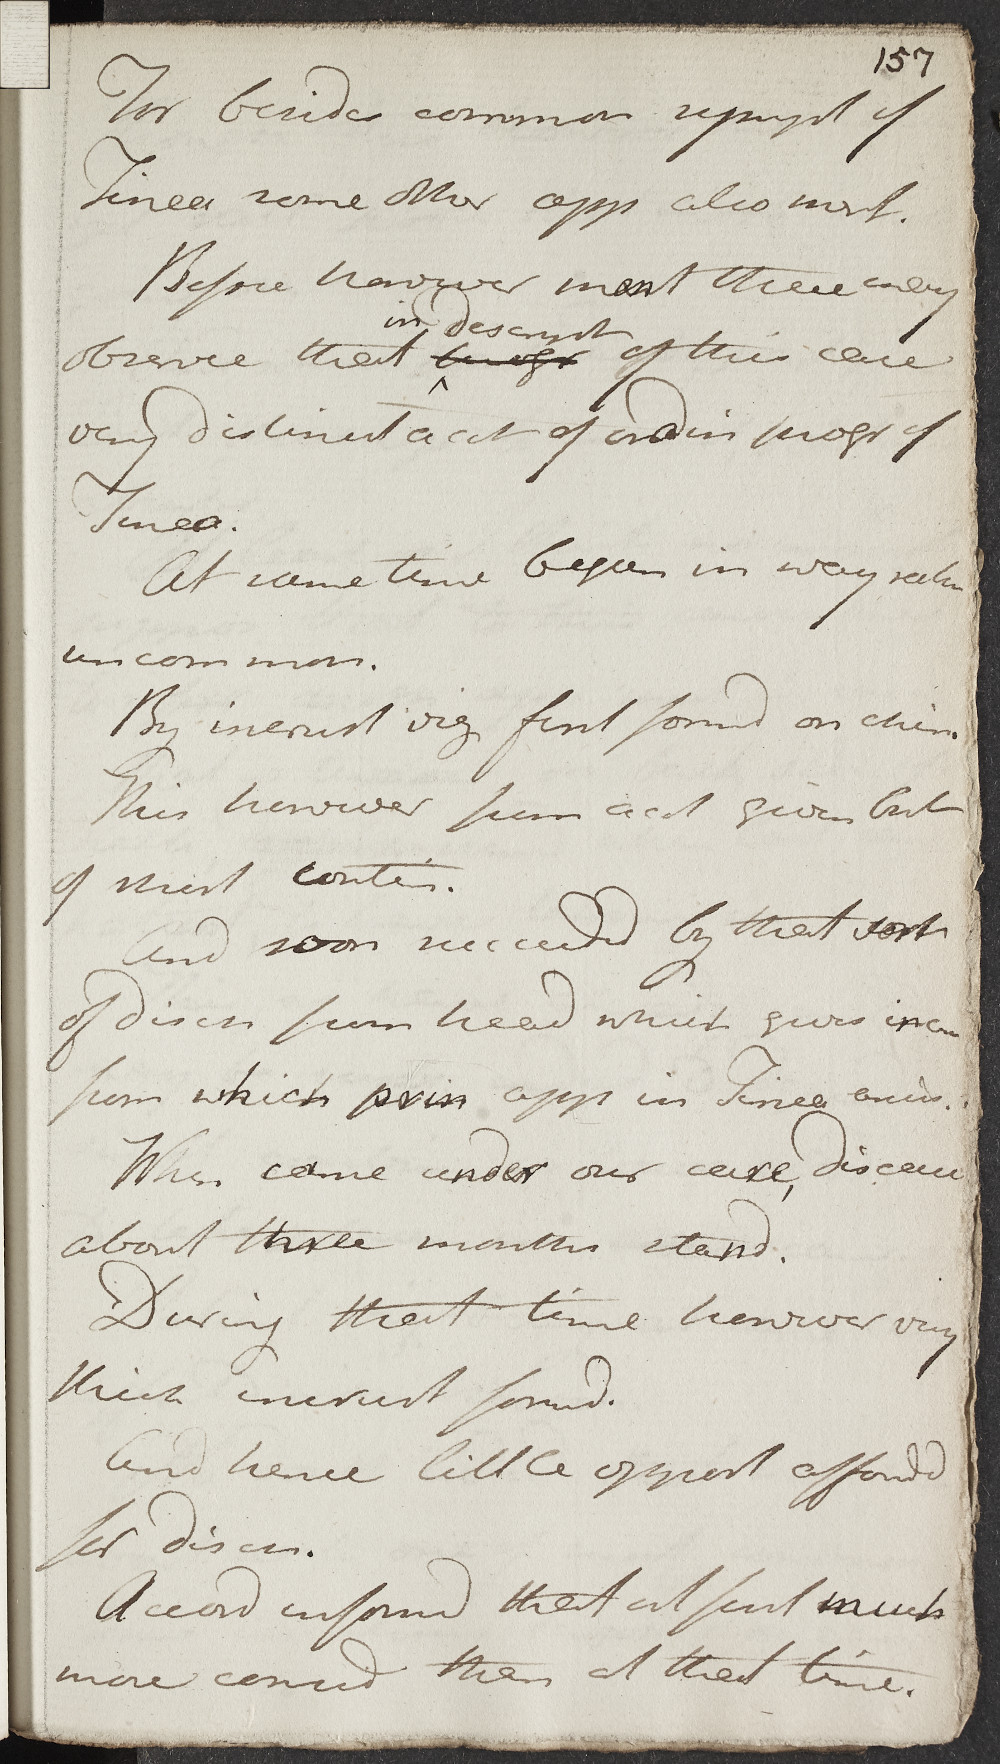 157
For besides common sympt of
Tinea some other app also ment.
Before however ment these may
observe that in descript progr of this case
very distinct acct of ordin progr of
Tinea.
At same time began in way rath
uncommon.
By incrust viz first formd on chin.
This however from acct given but
of short contin.
And soon succeeded by that sort
of disch from head which gives incr
from which prin app in Tinea arises.
When came under our care, disease
about three months stand.
During that time however very
thick incrust formd.
And hence little opport affordd
for disch.
Accord informd that at first much
more considd than at that time.